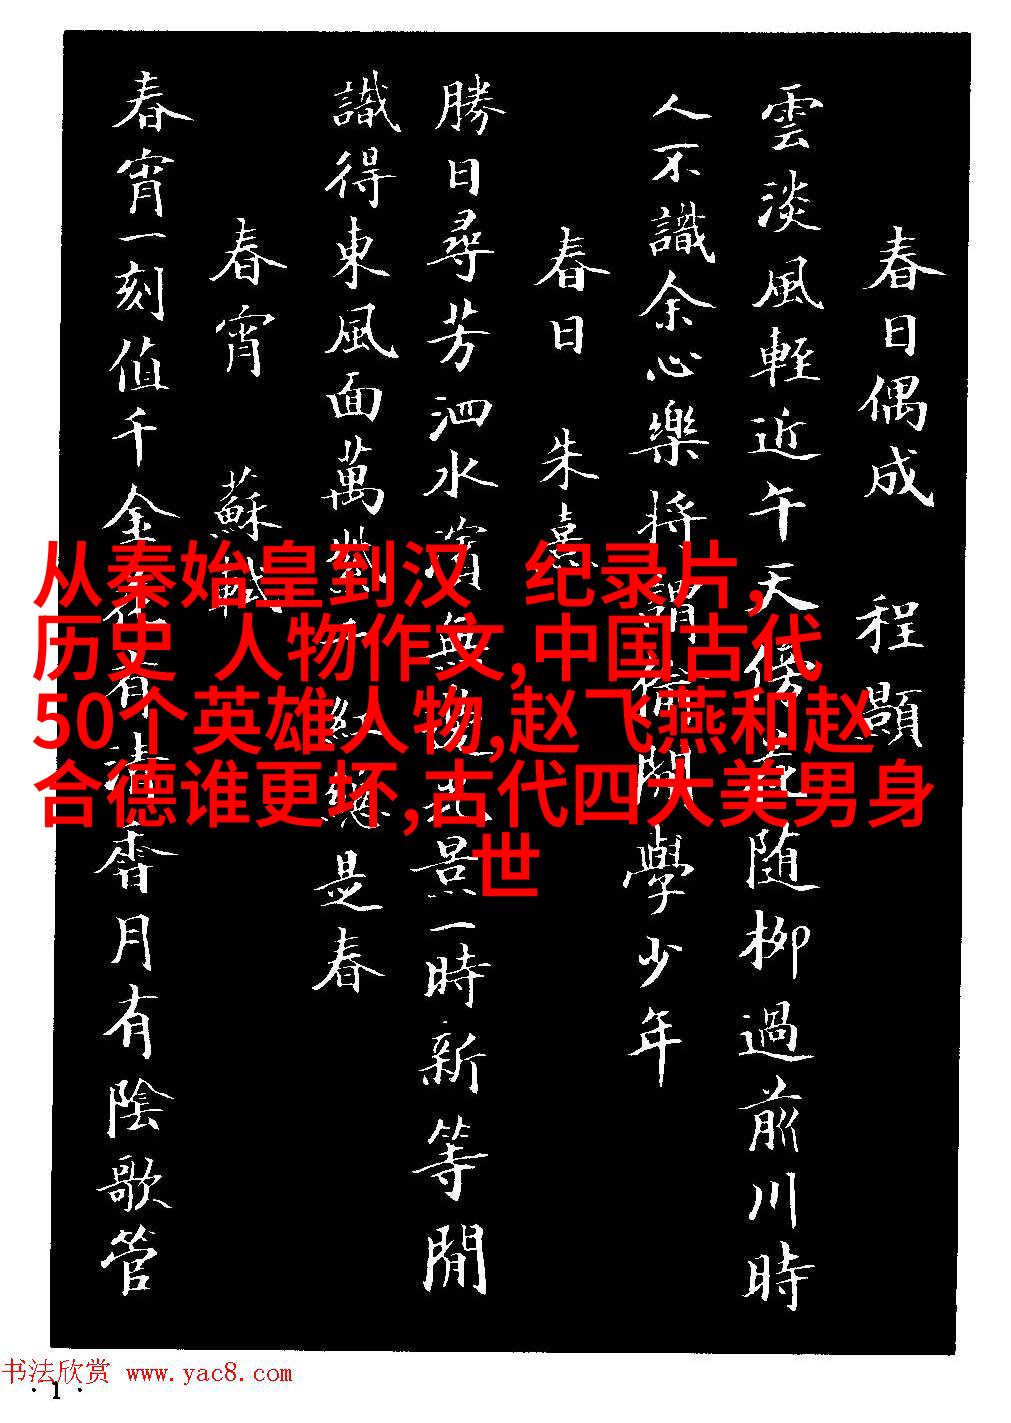 春日偶成 程顥
雲淡風輕近午天傍花随柳過前川時
人不識余心樂將謂偷閒學少年
春日 朱熹
勝日尋芳泗水濱無邊光景一時新等閒
識得東風面萬紫千紅總是春
春宵 蘇軾
春宵一刻值千金花有清香月有陰歌管
从秦始皇到汉 纪录片,
历史 人物作文,中国古代
50个英雄人物,赵飞燕和赵
合德谁更坏,古代四大美男身
世
书法欣赏 www.yac8.com
·1·